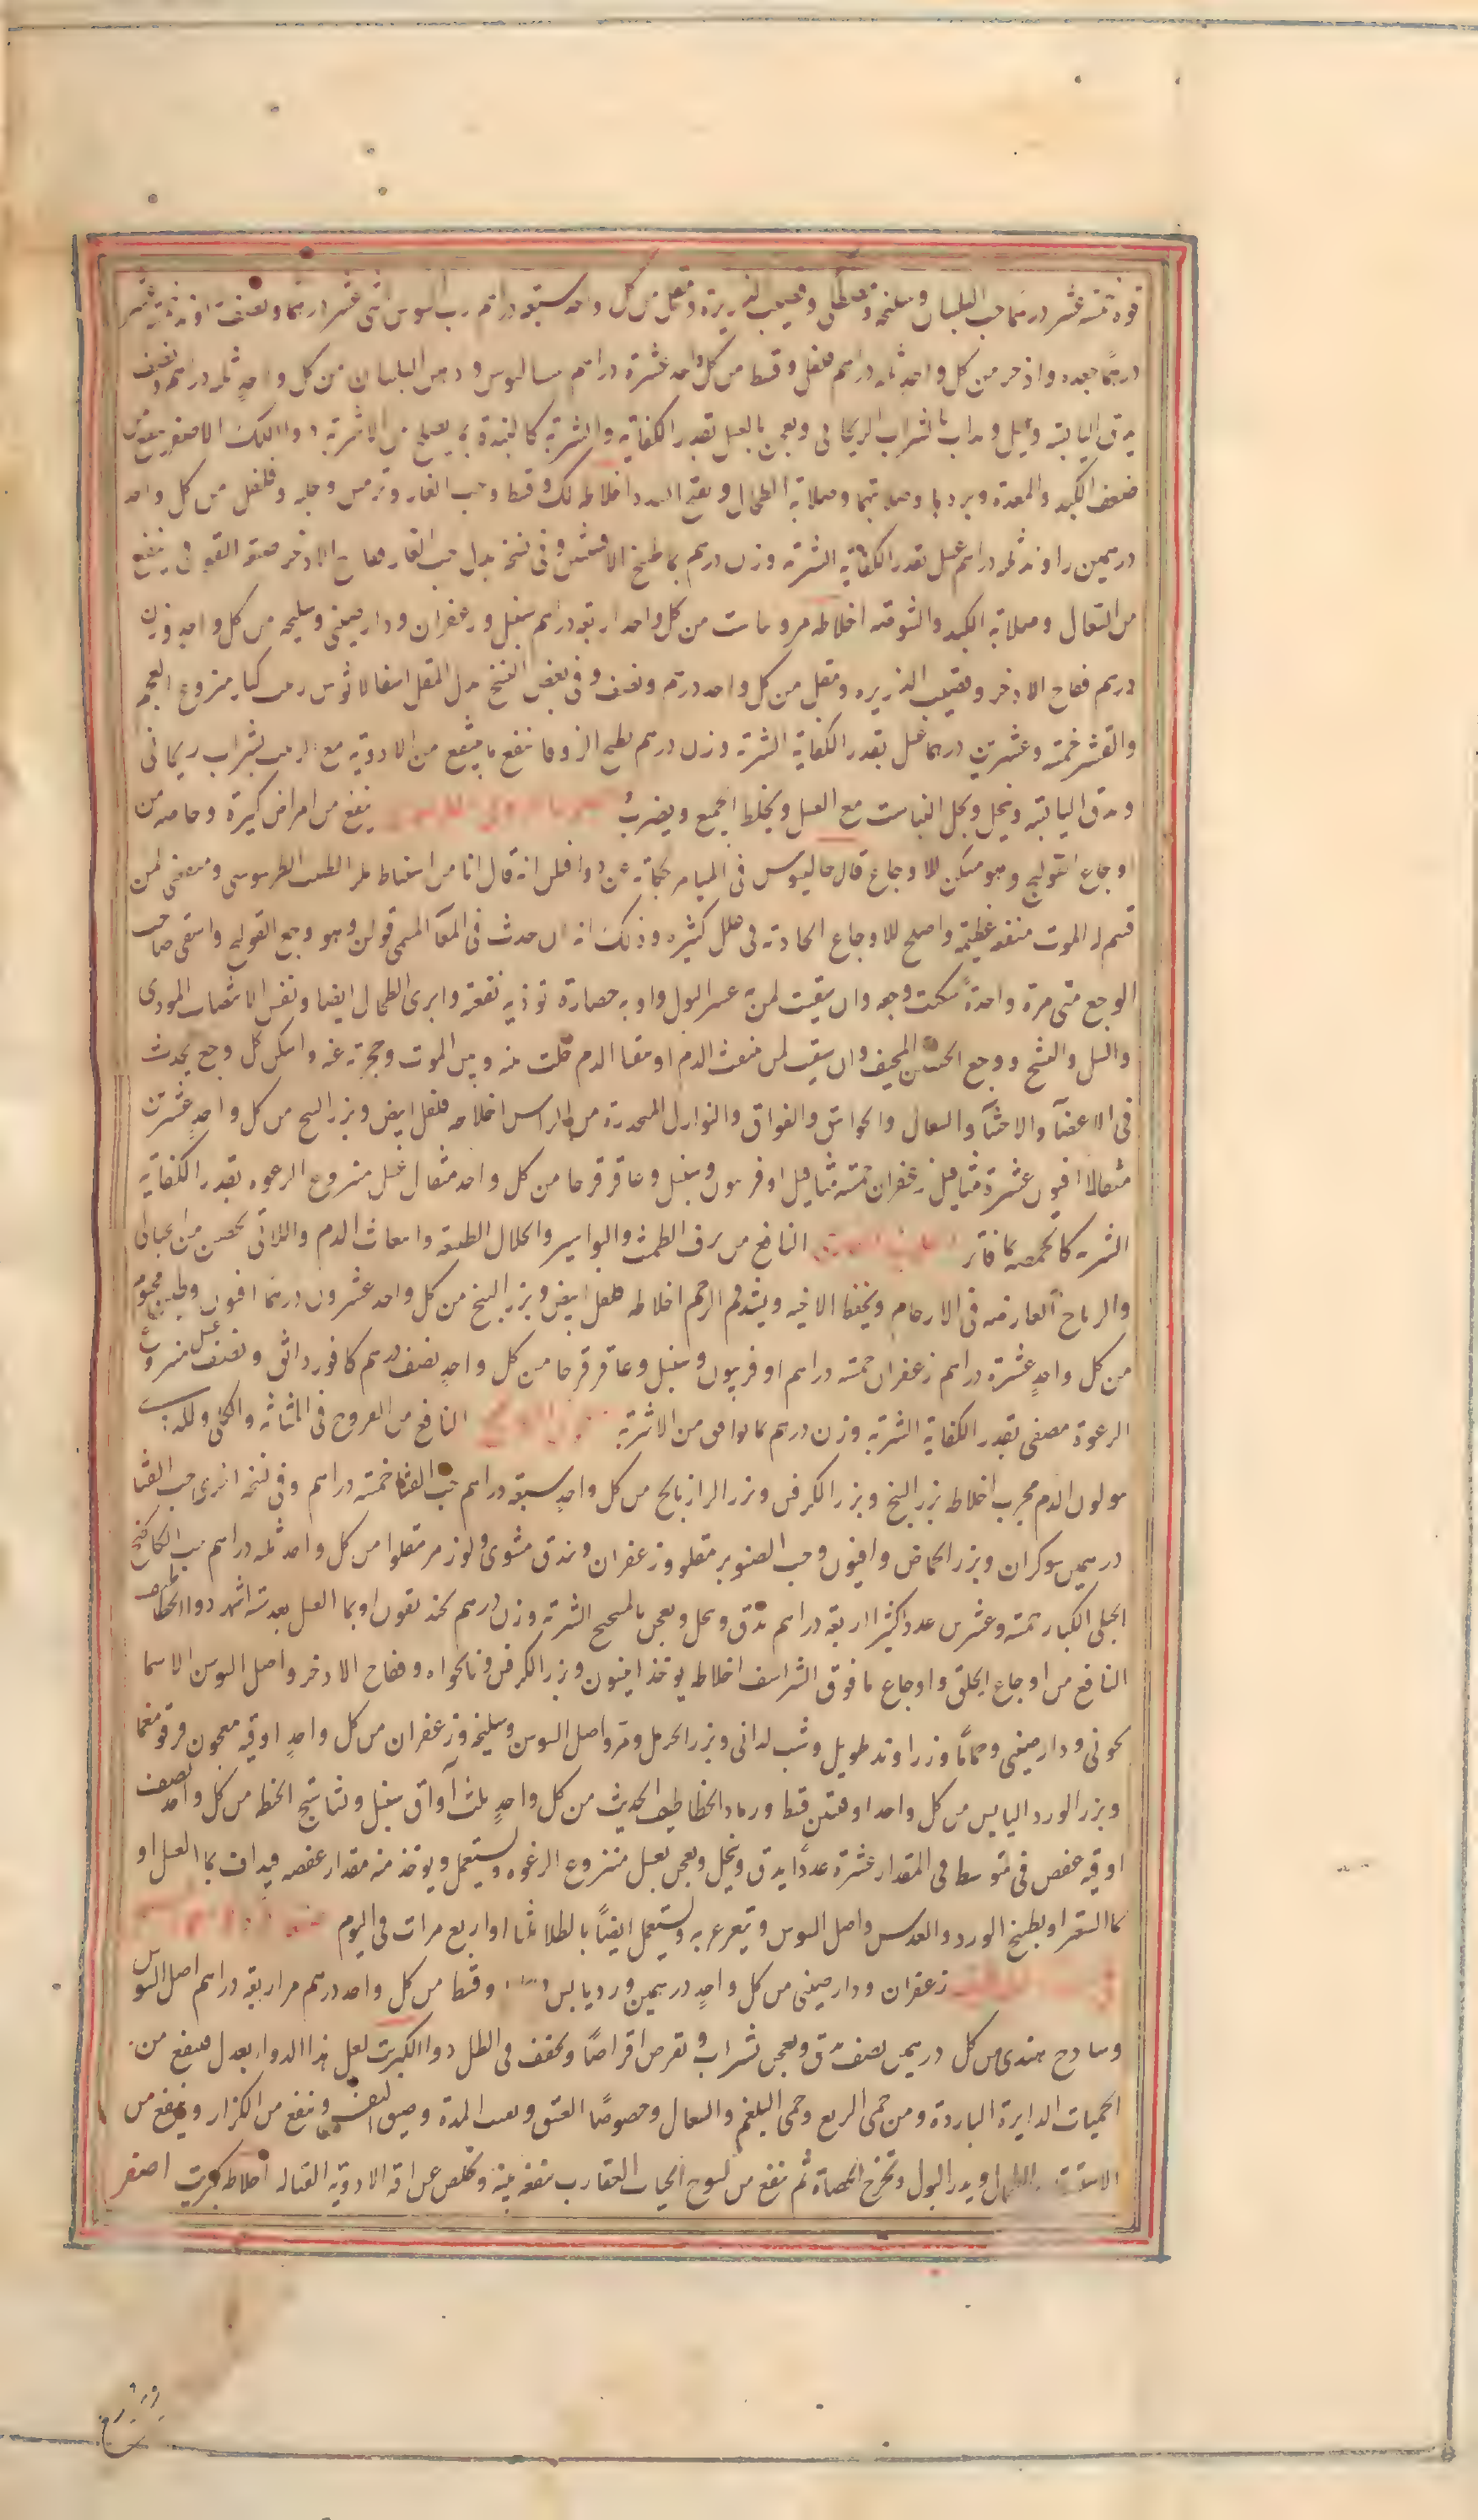 قوة خمسة عشر درهما حب البلسان وسليخة وقصب الذريرة ومقل من كل واحد سبعة دراهم رب السوس اثنى عشر درهما ونصف
درهما جعده واذخر من كل واحد ثلثه دراهم فلفل وقسط من كل واحد عشرة دراهم سساليوس ودهن البلسان من كل واحدٍ ثلثه دراهم ونصف
يدق اليابسة وينخل ويداب بالشراب الريحانى ويعجن بالعسل بقدر الكفاية والشربة كالبندقة بما يصلح من الاشربة دواء اللك الاصغر ينفع من
ضعف الكبد والمعدة وبردها وصلابتهما وصلابة الطحال ويفتح السدد اخلاطه لك وقسط وحب الغار وترمس وحلبه وفلفل من كل واحد
درهمين راوند ثلثه دراهم عسل بقدر الكفاية الشربة وزن درهم بماء طبيخ الافسنتين وفى نسخة بدل حب الغار فقاح الاذخر صفة القوفى ينفع
من السعال وصلابة الكبد والشوصة اخلاطه مر وعاست من كل واحد اربعة دراهم سنبل وزعفران ودارصينى وسليخه من كل واحد وزن
درهم فقاح الاذخر وقصب الذريره ومقل من كل واحد درهم ونصف وفى بعض النسخ بدل المقل اسفالاثوس زبيب كبار منزوع العجم
والقشر خمسة وعشرين درهما عسل بقدر الكفاية الشربة وزن درهم بطبيخ الزوفا ينقع ما ينقع من الادوية مع الزبيب بشراب ريحانى
ويدق اليابسة وينخل ويحل العباست مع العسل ويخلط الجميع ويضرب ينفع من امراض كثيرة وخاصه من
اوجاع القولنج وهو مسكن للاوجاع قال جالينوس فى الميامر حكاية عن فلن انه قال انا من استنباط الطبيب الطرسوسى ومنفعتى لمن
قسم له الموت منفعة عظيمة واصلح للاوجاع الحادثه فى علل كثيره وذلك انه ان حدث فى المعآ المسمى قولن وهو وجع القولنج واسقى صاحب
الوجع منى مرة واحدةً سكنت وجعه وان سقيت لمن به عسر البول او به حصاة توذيه نفعته وابرئ الطحال ايضا ونفس الانتصاب الموذى
والسل والتشنج ووجع الجنبين المخيف وان سقيت لمن ينفث الدم او يتقيا الدم حلت بينه وبين الموت وحجزته عنه واسكن كل وجع يحدث
فى الاعضآ والاحشآ والسعال والخوانيق والفواق والنوازل المنحدرة من الراس اخلاطه فلفل ابيض وبزر البنج من كل واحدٍ عشرين
مثقالا افيون عشرة مثاقيل زعفران خمسة مثاقيل اوفربيون وسنبل وعاقرقرحا من كل واحد مثقال عسل منزوع الرغوه بقدر الكفاية
الشربة كالحمصه بماء فاتر النافع من نزف الطمث والبواسير وانحلال الطبيعة وانبعاث الدم واللاتى
والرياح العارضه فى الارحام ويحفظ الاجنه ويشد فم الرحم اخلاطه فلفل ابيض وبزر البنج من كل واحد عشرون درهما افيون وطين مختوم
من كل واحدٍ عشرة دراهم زعفران خمسه دراهم اوفربيون وسنبل وعاقرقرحا من كل واحدٍ نصف درهم كافور دانق ونصف عسل منزوع
الرغوة مصفى بقدر الكفاية الشربة وزن درهم بما يوافق من الاشربة النافع من القروح فى المثانه والكلى وللذين
يبولون الدم مجرب اخلاطه بزر البنج وبزر الكرفس وبزر الرازيانج من كل واحدٍ سبعة دراهم حب القثا خمسة دراهم وفى نسخه اخرى حب القثا
درهمين شوكران وبزر الحماض وافيون وحب الصنوبر مقلو وزعفران وبندق مشوى ولوز مر مقلوا من كل واحد ثلثه دراهم حب الكاكنج
الجبلى الكبار خمسه وعشرين عددا كثيرا اربعة دراهم يدق وينخل ويعجن بالميبختج الشربة وزن درهم بخنديقون او بماء العسل بعد ستة اشهر دواء الخطاطيف
النافع من اوجاع الحلق واوجاع ما فوق الشراسف اخلاطه يوخذ انيسون وبزر الكرفس ونانخواه وفقاح الاذخر واصل السوسن الاسما
نجونى ودارصينى وحماما وزراوند طويل وشب يمانى وبزر الحرمل ومر واصل السوسن وسليخه وزعفران من كل واحدٍ اوقيه معجون قرقومغما
وبزر الورد اليابس من كل واحد اوقيتين قسط ورماد الخطاطيف الحديث من كل واحدٍ ثلث آواق سنبل ونشاستج الحنطه من كل واحد نصف
اوقيه عفص فى متوسط فى المقدار عشرة عددًا يدق وينخل ويعجن بعسل منزوع الرغوه ويستعمل ويوخذ منه مقدار عفصه فيداف بماء العسل او
بماء الشعير او بطبيخ الورد والعدس واصل السوس ويتغرغر به ويستعمل ايضًا بالطلا ثلثا او اربع مرات فى اليوم
زعفران ودارصينى من كل واحدٍ درهمين ورد يابس وقسط من كل واحد درهم مر اربعة دراهم اصل السوس
وساذج هندى من كل درهمين نصف يدق ويعجن بشراب ويقرص اقراصًا ويجفف فى الظل دواء الكبريت لعل هذا الدواء يعدل فينفع من
الحميات الدايرة الباردة ومن حمى الربع وحمى البلغم والسعال وخصوصًا العتيق ونفث المدة وضيق النفس وينفع من الكزاز وينفع من
الاستسقا والطحال ويدر البول ويخرج الحصاة ثم ينفع من لسوع الحيات العقارب منفعة بينة ويخلص عن افة الادوية القتاله اخلاطه كبريت اصفر